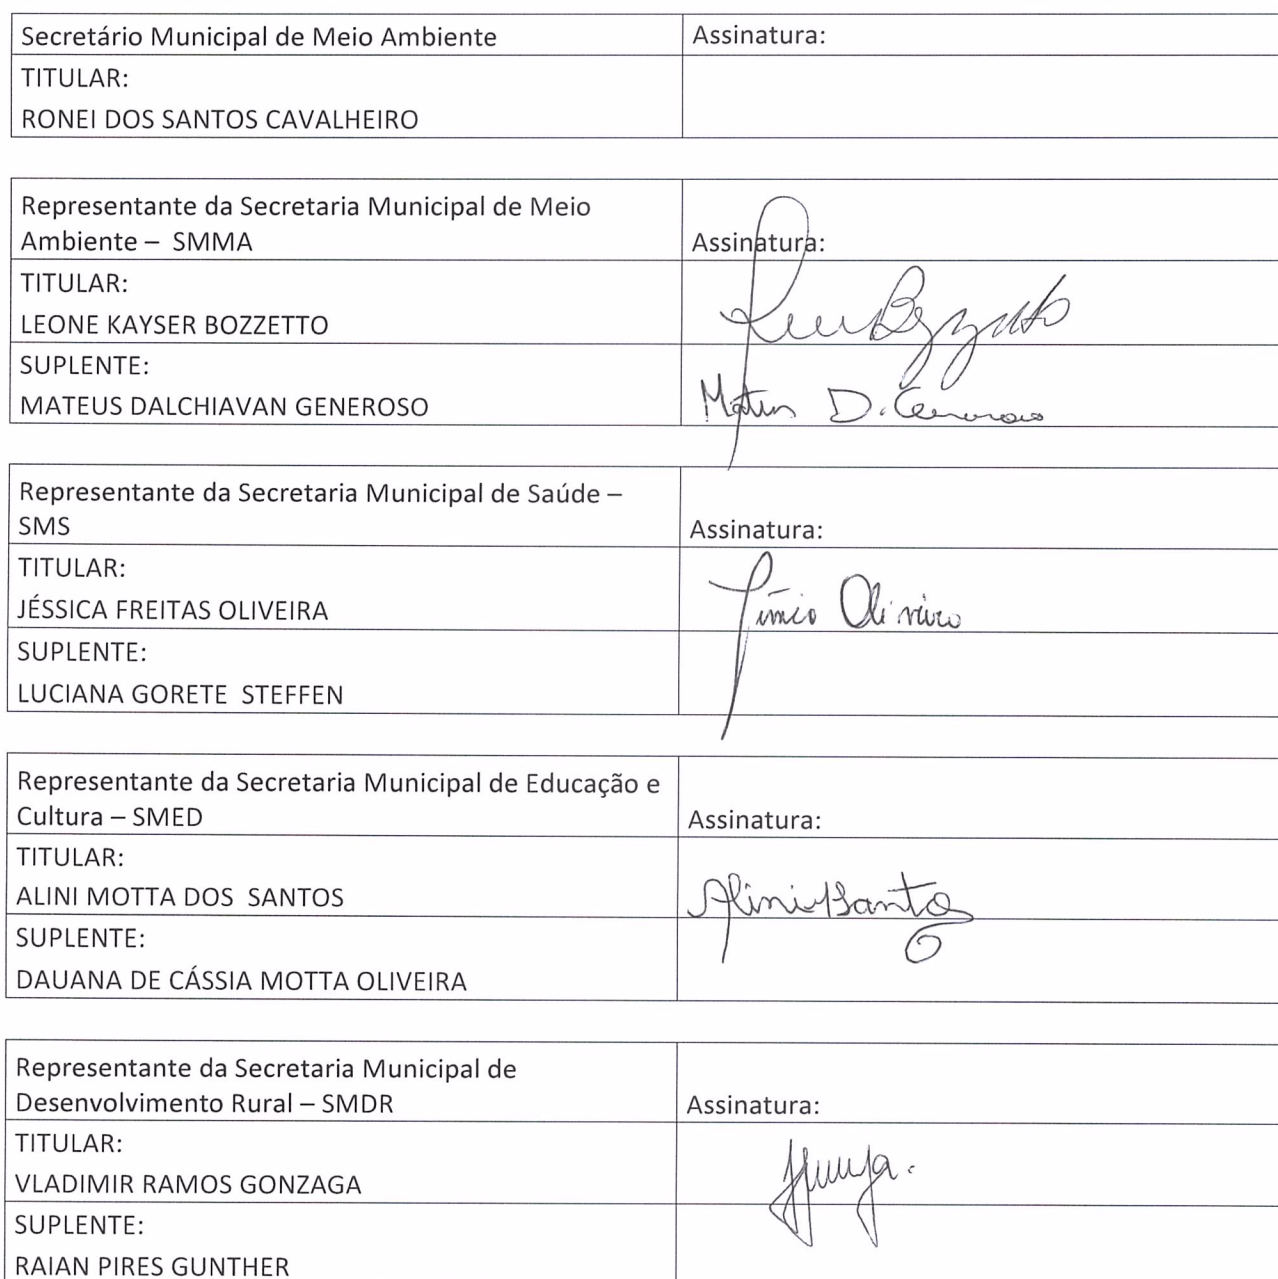 Secretário Municipal de Meio Ambiente
Assinatura:
TITULAR:
RONEI DOS SANTOS CAVALHEIRO
Representante da Secretaria Municipal de Meio
Ambiente – SMMA
Assinatura:
TITULAR:
LEONE KAYSER BOZZETTO
SUPLENTE:
MATEUS DALCHIAVAN GENEROSO
Mateus D. Generoso
Representante da Secretaria Municipal de Saúde –
SMS
Assinatura:
TITULAR:
JÉSSICA FREITAS OLIVEIRA
Oliveira
SUPLENTE:
LUCIANA GORETE STEFFEN
Representante da Secretaria Municipal de Educação e
Cultura – SMED
Assinatura:
TITULAR:
ALINI MOTTA DOS SANTOS
Alini Santos
SUPLENTE:
DAUANA DE CÁSSIA MOTTA OLIVEIRA
Representante da Secretaria Municipal de
Desenvolvimento Rural – SMDR
Assinatura:
TITULAR:
VLADIMIR RAMOS GONZAGA
SUPLENTE:
RAIAN PIRES GUNTHER